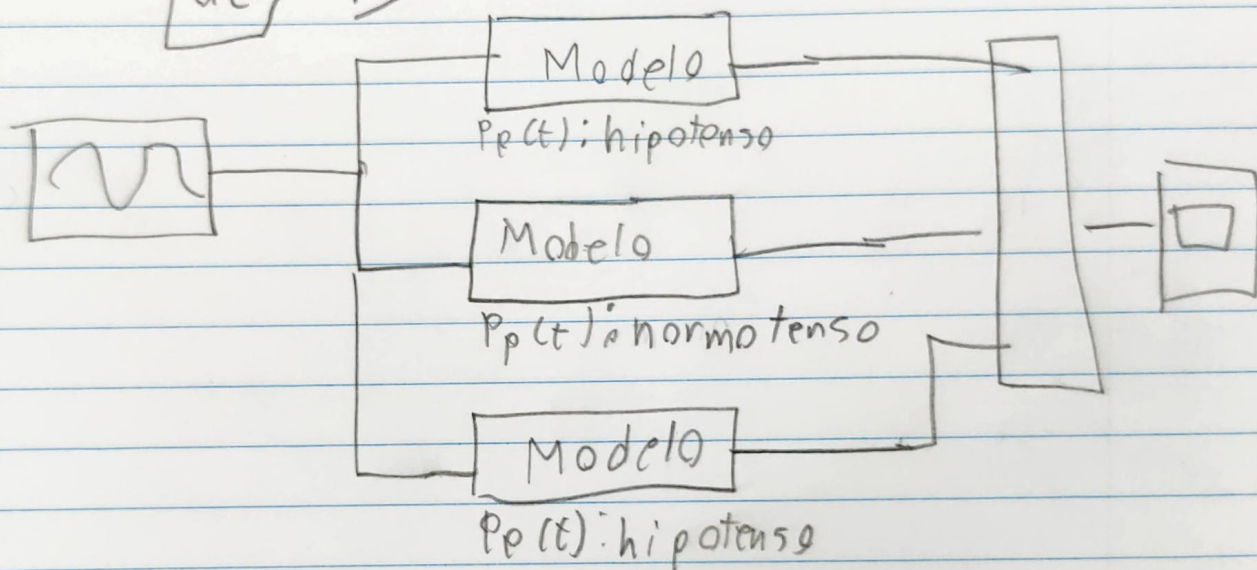 Modelo
Pp(t): hipotenso
Modelo
Pp(t): normotenso
Modelo
Pp(t): hipotenso